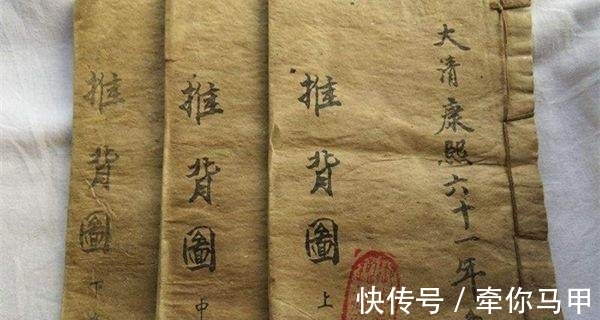 大清康熙六十一年
推背圖
上
推背圖
中
推背圖
下
快传号 / 牵你马甲